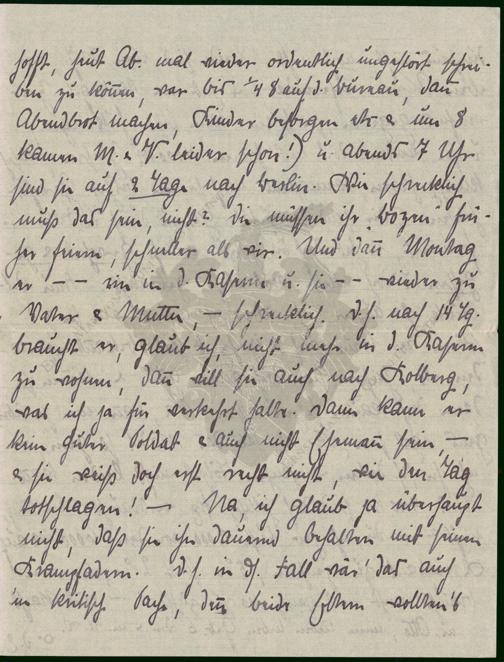 hofft, heut Ab. mal wieder ordentlich ungestört schrei-
ben zu können, war bis 1/4 8 auf d. Bureau, dann
Abendbrot machen, Kinder besorgen etc & um 8
kamen M. & V. leider schon!) u. abends 7 Uhr
sind sie auf 2 Tage nach Berlin. Wie schrecklich
muß das sein, nicht? Die müssen ihr "Bozen" frü-
her feiern, schneller als wir. Und dann Montag
er — — in d. Kaserne u. sie — — wieder zu
Vater & Mutter, — schrecklich. D.h. nach 14 Tg.
braucht er, glaub ich, nicht mehr in d. Kaserne
zu wohnen, dann will sie auch nach Kolberg,
was ich ja für verkehrt halte. Dann kann er
kein guter Soldat & auch nicht Ehemann sein, —
& sie weiß doch erst recht nicht, wie den Tag
totschlagen! — Na ich glaub ja überhaupt
nicht, daß sie ihn dauernd behalten mit seinen
Krampfadern. D.h. in ds. Fall wär' das auch
'ne kritisch. Sache, denn beide Eltern wollten's